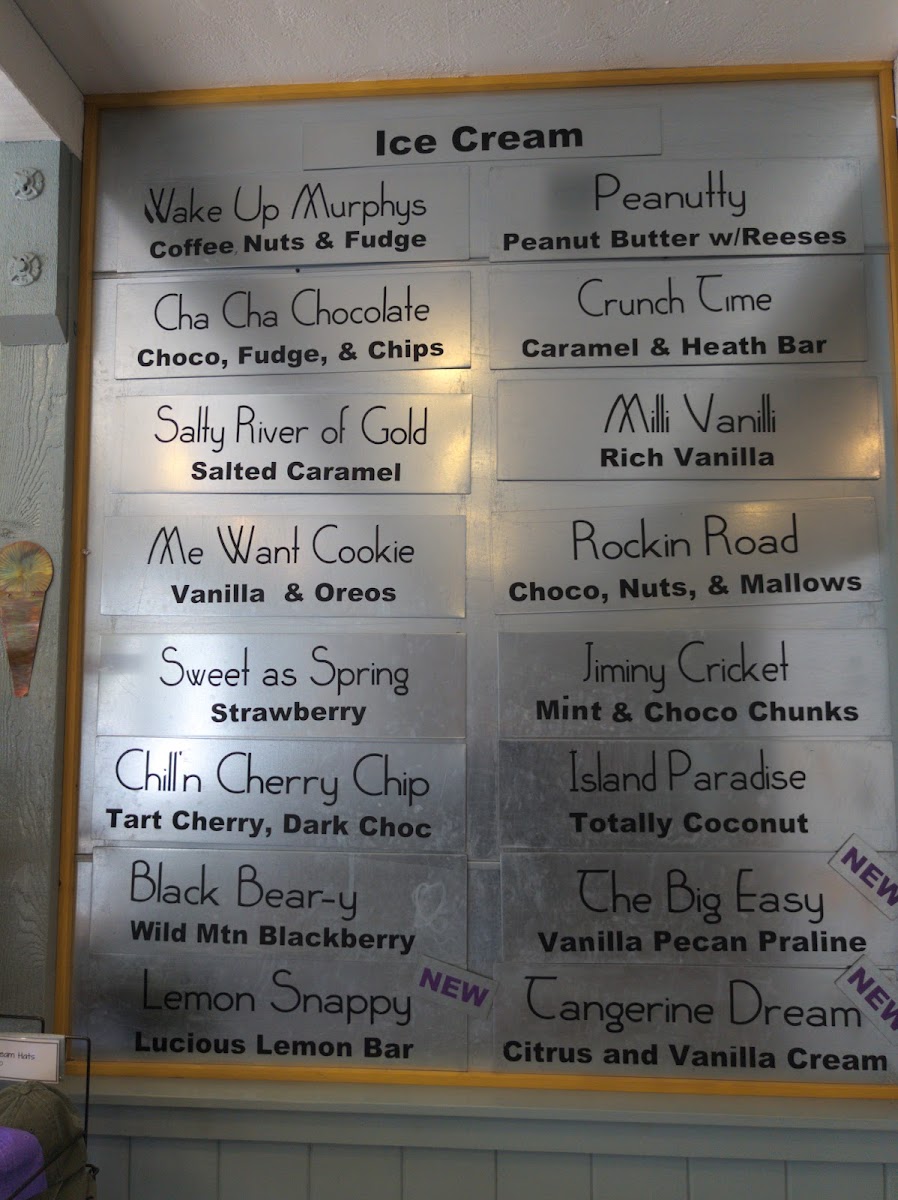 Ice Cream
Wake Up Murphys
Coffee Nuts & Fudge
Peanutty
Peanut Butter w/Reeses
Cha Cha Chocolate
Choco, Fudge, & Chips
Crunch Time
Caramel & Heath Bar
Salty River of Gold
Salted Caramel
Milli Vanilli
Rich Vanilla
Me Want Cookie
Vanilla & Oreos
Rockin Road
Choco, Nuts, & Mallows
Sweet as Spring
Strawberry
Jiminy Cricket
Mint & Choco Chunks
Chill'n Cherry Chip
Tart Cherry, Dark Choc
Island Paradise
Totally Coconut
Black Bear-y
Wild Mtn Blackberry
The Big Easy
Vanilla Pecan Praline
NEW
Lemon Snappy
Lucious Lemon Bar
NEW
Tangerine Dream
Citrus and Vanilla Cream
NEW
Hats